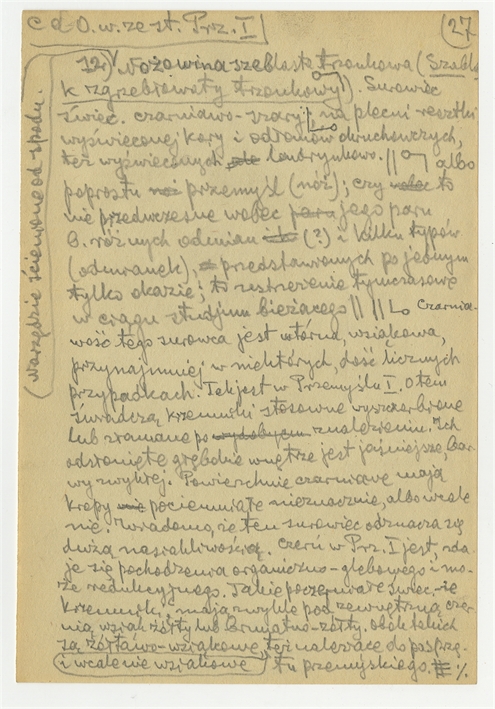 c d O. w. ze st. Prz. I
27
12) Nożowina szeblastk trzonkowa (Szabl
k zgrzebłowaty trzonkowy). Surowiec
świec. czarniawo-szary, na plecni resztki
wyświeconej kory i odłomów okruchowych,
też wyświeconych landrynkowo. || albo
poprostu przemyśl (nóż); czy to
nie przedwczesne wobec jego paru
6. różnych odmian (?) i kilku typów
(odmianek), przedstawionych po jednym
tylko okazie; to zestrzeżenie tymczasowe
w ciągu studjum bieżącego || || Czarnia-
wość tego surowca jest wtórna, wziąkowa,
przynajmniej w niektórych, dość licznych
przypadkach. Tak jest w Przemyślu I. O tem
świadczą krzemyki stosowne wyszczerbione
lub złamane po znalezieniu. Ich
odsłonięte głębokie wnętrze jest jaśniejsze, bar-
wy zwykłej. Powierzchnie czarniawe mają
kropy pociemniałe nieznacznie, albo wcale
nie. Wiadomo, że ten surowiec odznacza się
dużą nasiąkliwością. Czerń w Prz. I jest, zda-
je się pochodzenia organiczno-glebowego i mo-
że redukcyjnego. Takie poczerniałe świec-ie
krzemyki mają zwykle pod zewnętrzną czer-
nią wziąk żółty lub brunatno-żółty. obok takich
są żółtawo-wziąkowe, też należące do posprzę-
i wcale nie wziąkowe tu przemyskiego. # ./.
(Narzędzie ścienione od spodu.